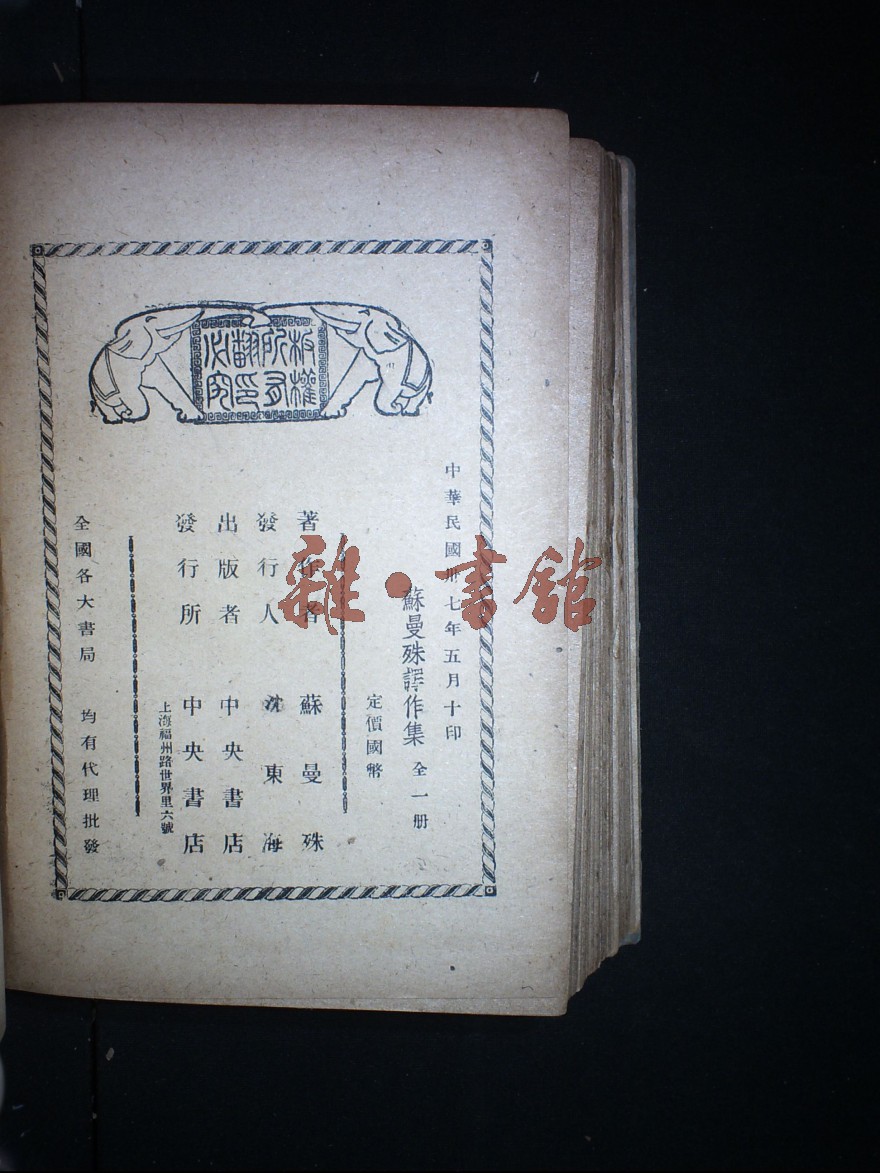 版權
所有
翻印
必究
中華民國卅七年五月十印
蘇曼殊譯作集 全一册
定價國幣
著作者 蘇曼殊
發行人 沈東海
出版者 中央書店
發行所 中央書店
上海福州路世界里六號
全國各大書局 均有代理批發
雜·書館